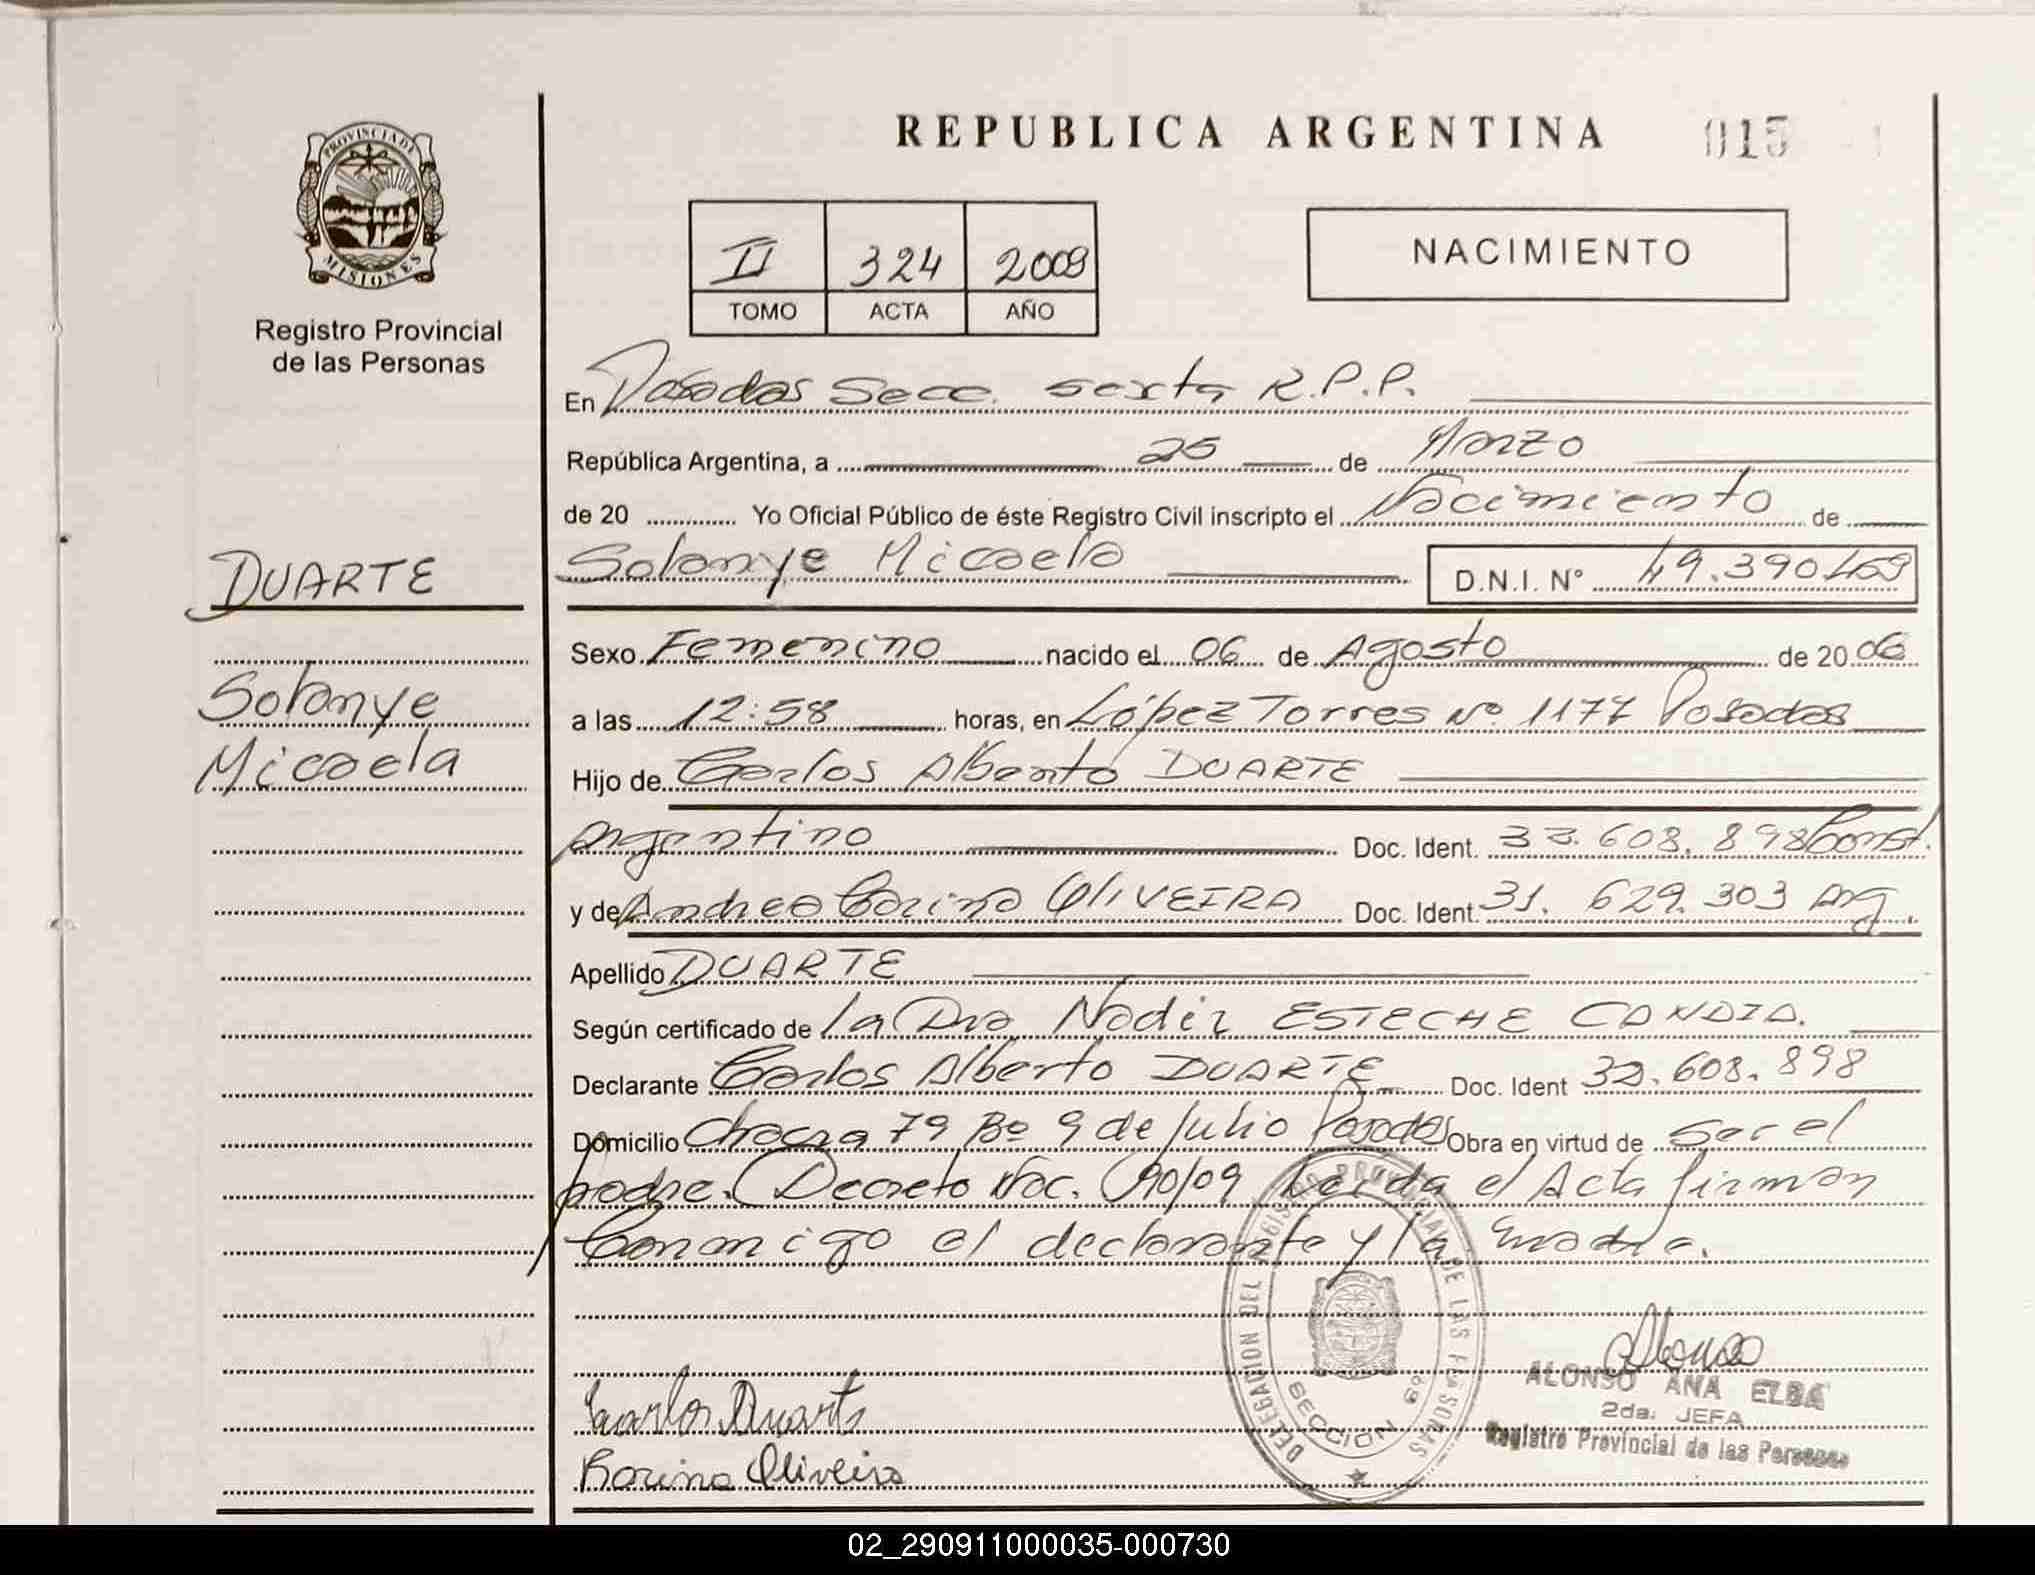 REPUBLICA ARGENTINA
015
PROVINCIA DE
MISIONES
Registro Provincial
de las Personas
II 324 2009
TOMO ACTA AÑO
NACIMIENTO
En Posadas Secc. sexta R.P.P.
República Argentina, a 25 de Marzo
de 20 Yo Oficial Público de éste Registro Civil inscripto el Nacimiento de
DUARTE
Solanye Micaela D.N.I. N° 49.390.
Solanye
Micaela
Sexo Femenino nacido el 06 de Agosto de 2006
a las 12:58 horas, en López Torres Nº 1177 Posadas
Hijo de Carlos Alberto DUARTE
Argentino Doc. Ident. 608.898 Const.
y de Andrea Corina OLIVEIRA Doc. Ident. 31.629.303 Arg.
Apellido DUARTE
Según certificado de la Dra Nadir ESTECHE CANDIA.
Declarante Carlos Alberto DUARTE Doc. Ident 608.898
Domicilio Chacra 79 Bo 9 de Julio Posadas Obra en virtud de Ser el
padre. (Decreto Nac. 90/09 Leida el Acta firman
Conmigo el declarante y la madre.
DELEGACION DEL REGISTRO PROVINCIAL DE LAS PERSONAS
SECCION 6ª
Alonso
ALONSO ANA ELBA
2da. JEFA
Registro Provincial de las Personas
Carlos Duarte
Corina Oliveira
02_290911000035-000730